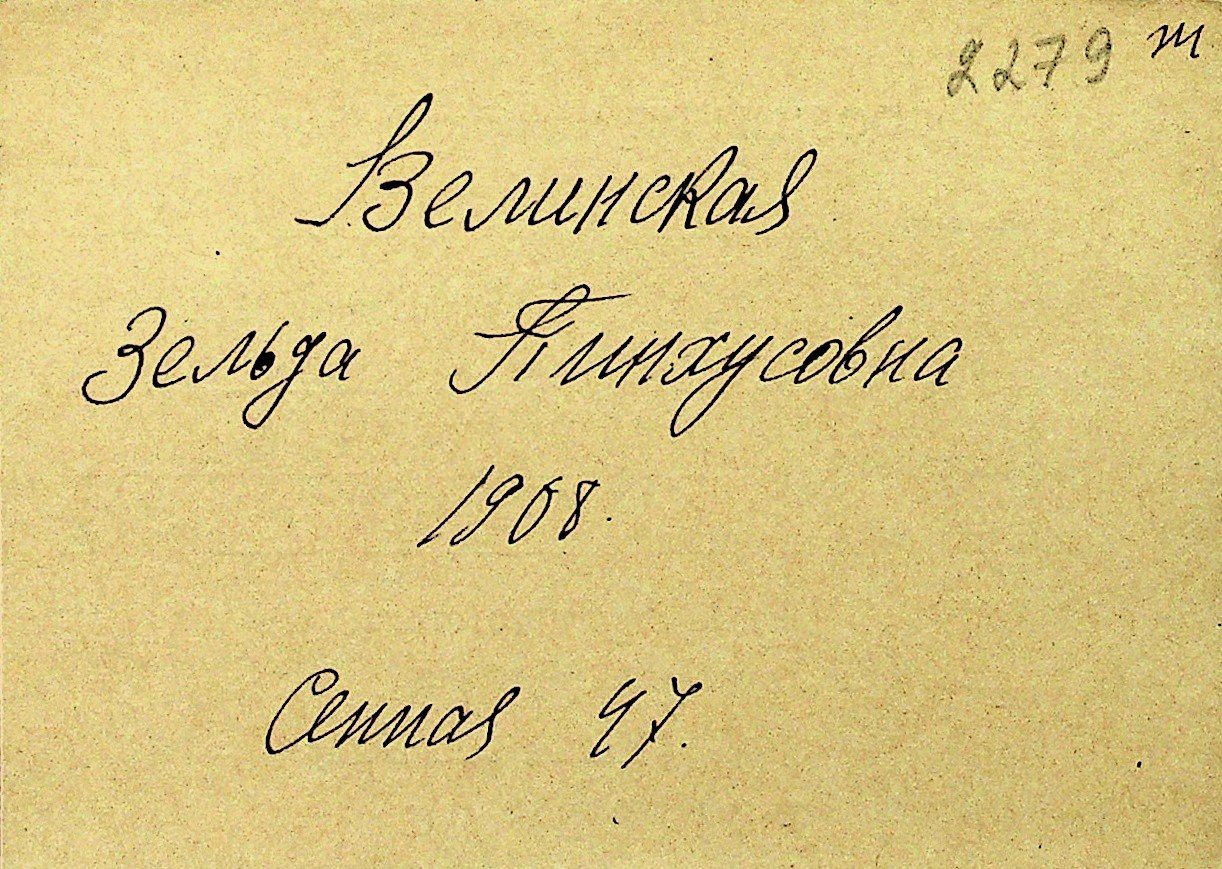 2279 т
Велинская
Зельда Пинхусовна
1908.
Сенная 47.